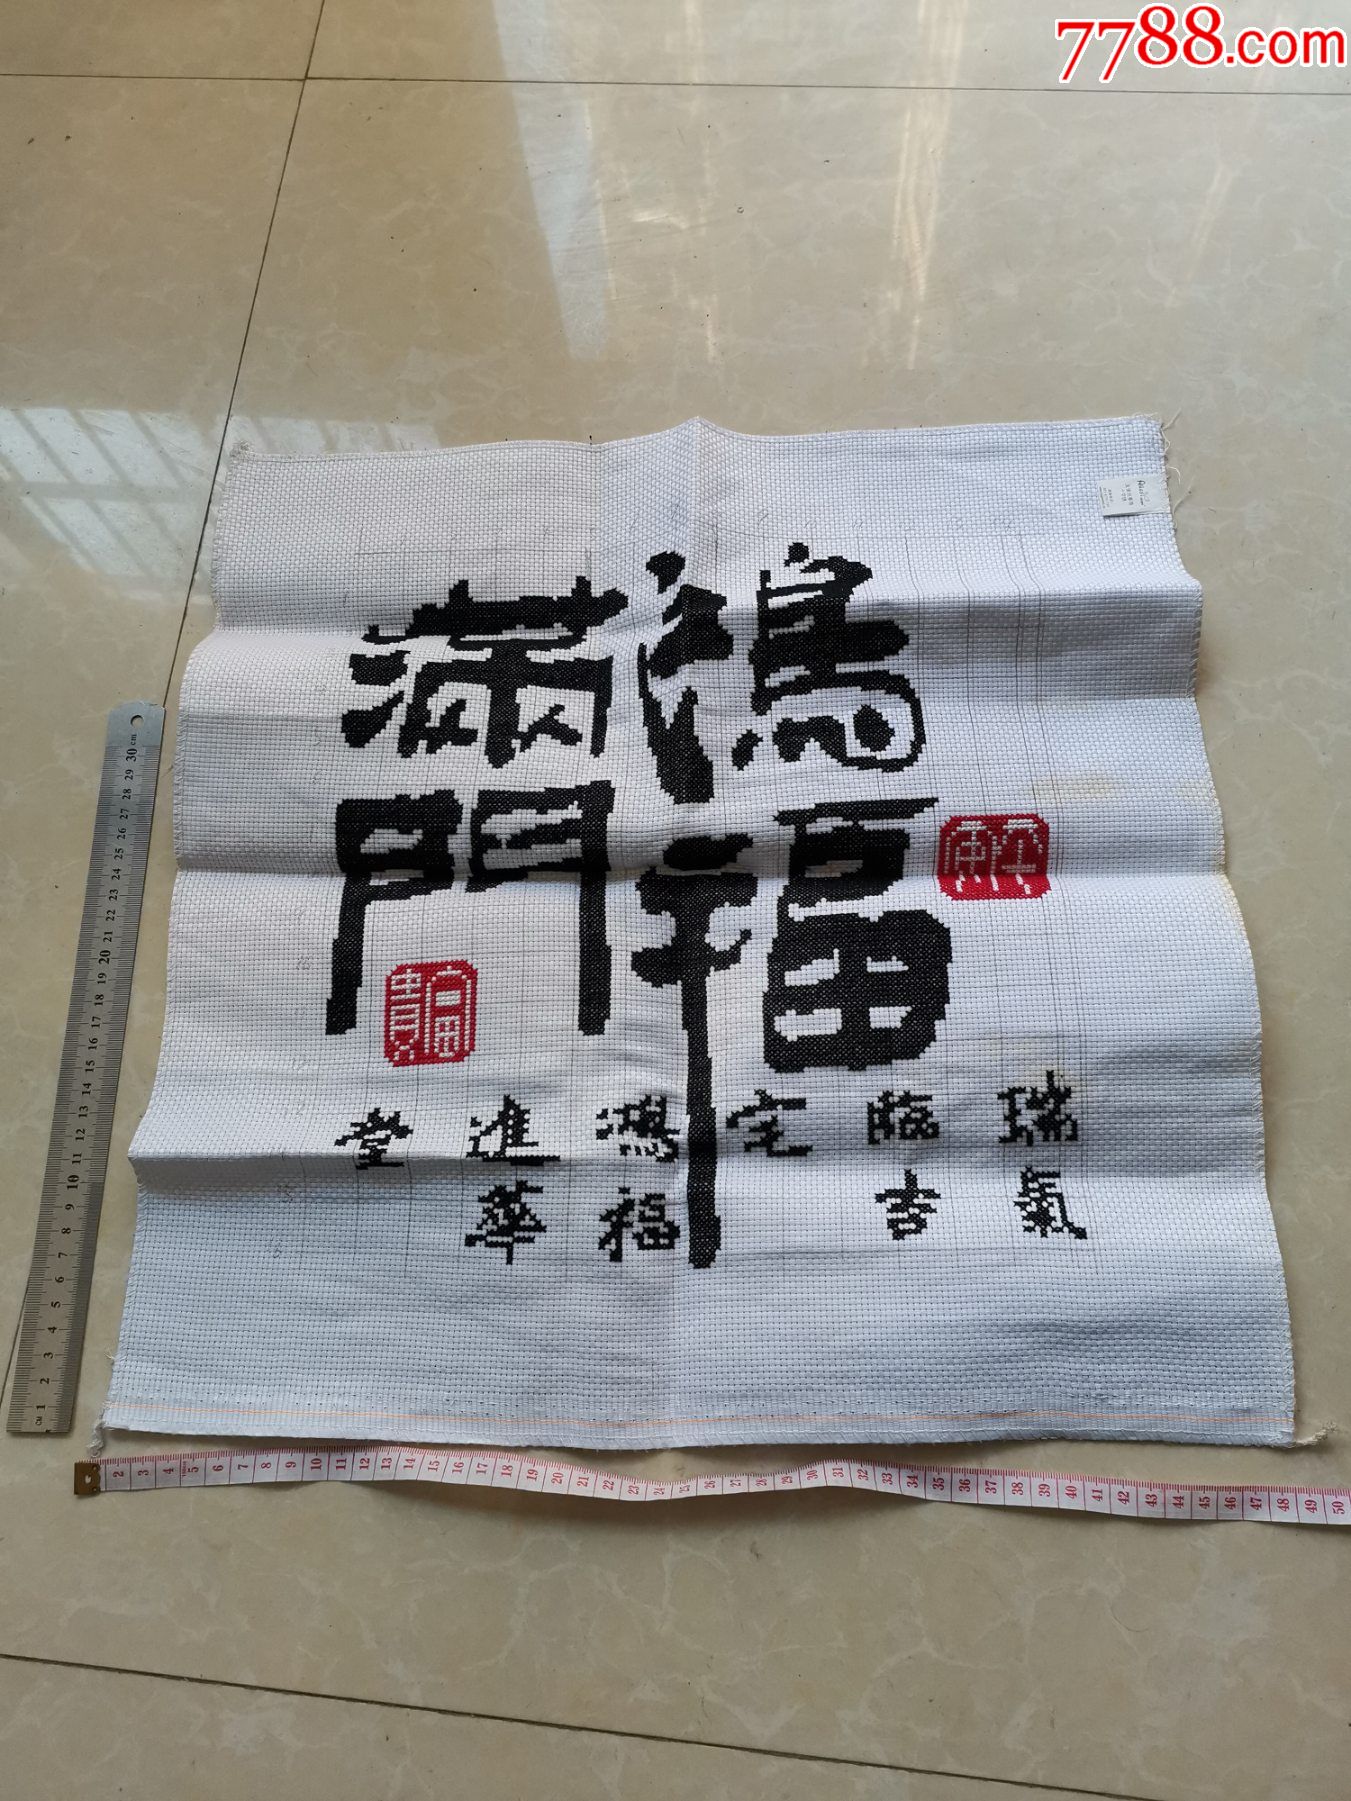 7788.com
鴻福
滿門
瑞氣
臨吉
宅
鴻福
進華
堂
cm 30 29 28 27 26 25 24 23 22 21 20 19 18 17 16 15 14 13 12 11 10 9 8 7 6 5 4 3 2 1 CM
2 3 4 5 6 7 8 9 10 11 12 13 14 15 16 17 18 19 20 21 22 23 24 25 26 27 28 29 30 31 32 33 34 35 36 37 38 39 40 41 42 43 44 45 46 47 48 49 50